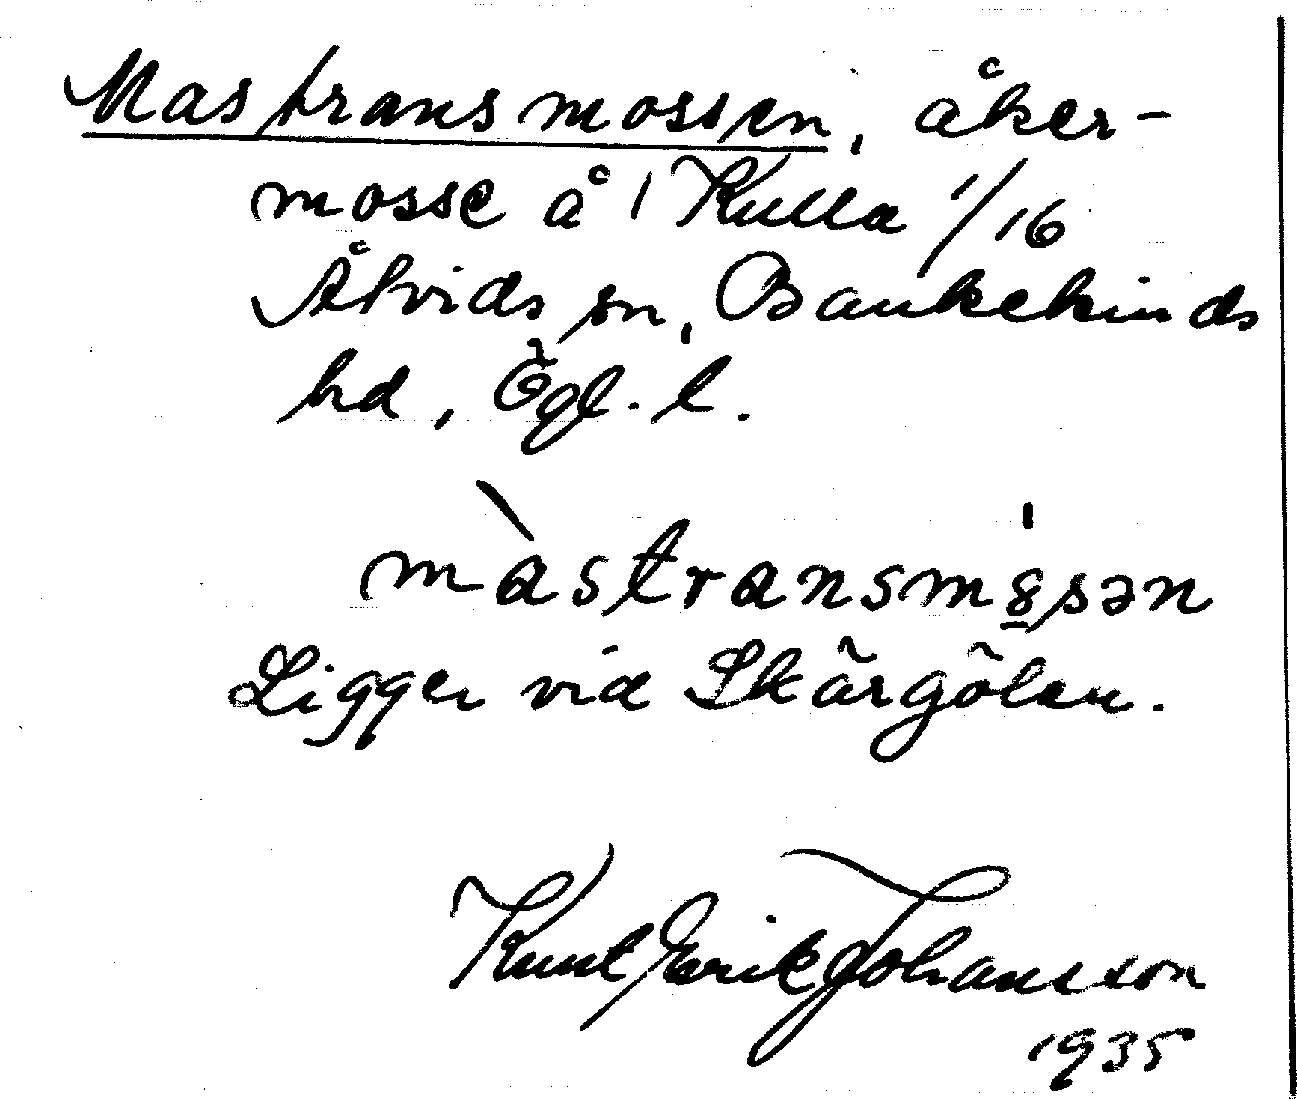 Mastransmossen, åker-
mosse å 1 Kulla 1/16
Åtvids sn, Bankekinds
hd, Ögl. l.
màstransmȣ̱́sən
Ligger vid Skärgölen.
Knut Erik Johansson
1935